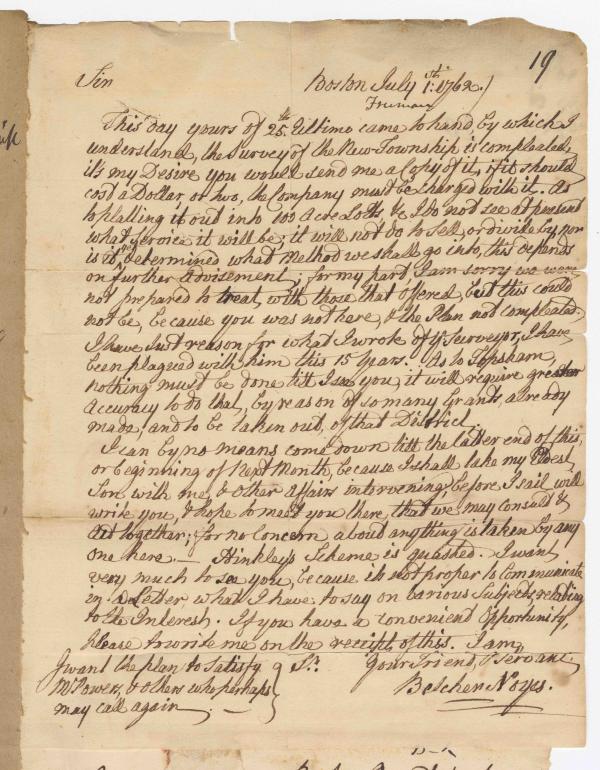 19
Sir
Boston July 1:st 1762.
Freeman
This day yours of 25.th Ultimo came to hand, by which I
understand, the Survey of the New Township is compleated,
it's my Desire you would send me a Copy of it, if it should
cost a Dollar or two, the Company must be charged with it. As
to platting it out into 100 Acre Lotts &c I do not see at present
what service it will be; it will not do to sell, or divide by, nor
is it yet determined what Method we shall go into, this depends
on further Advisement; for my part I am sorry we were
not prepared to treat with those that offered, but this could
not be, because you was not here, & the Plan not compleated.
I have Just reason for what I wrote of ye Surveyor, I have
been plagued with him this 15 Years. As to Topsham,
nothing must be done till I see you, it will require greater
Accuracy to do that, by reason of so many Grants, already
made, and to be taken out, of that District.
I can by no means come down till the latter end of this,
or beginning of Next Month, because I shall take my Eldest
Son with me, & other Affairs intervening, before I sail will
write you, & hope to meet you there, that we may consult &
Act together; for no Concern about anything is taken by any
one here — Hinkley's Scheme is quashed. I want
very much to see you, because it's not proper to Communicate
in a Letter, what I have to say on various Subjects, relating
to the Interest. If you have a convenient Opportunity,
please to write me on the receipt of this. I am
Sr. Your Friend, & Servant
Belcher Noyes.
I want the plan to Satisfy
Mr Powers, & others who perhaps
may call again